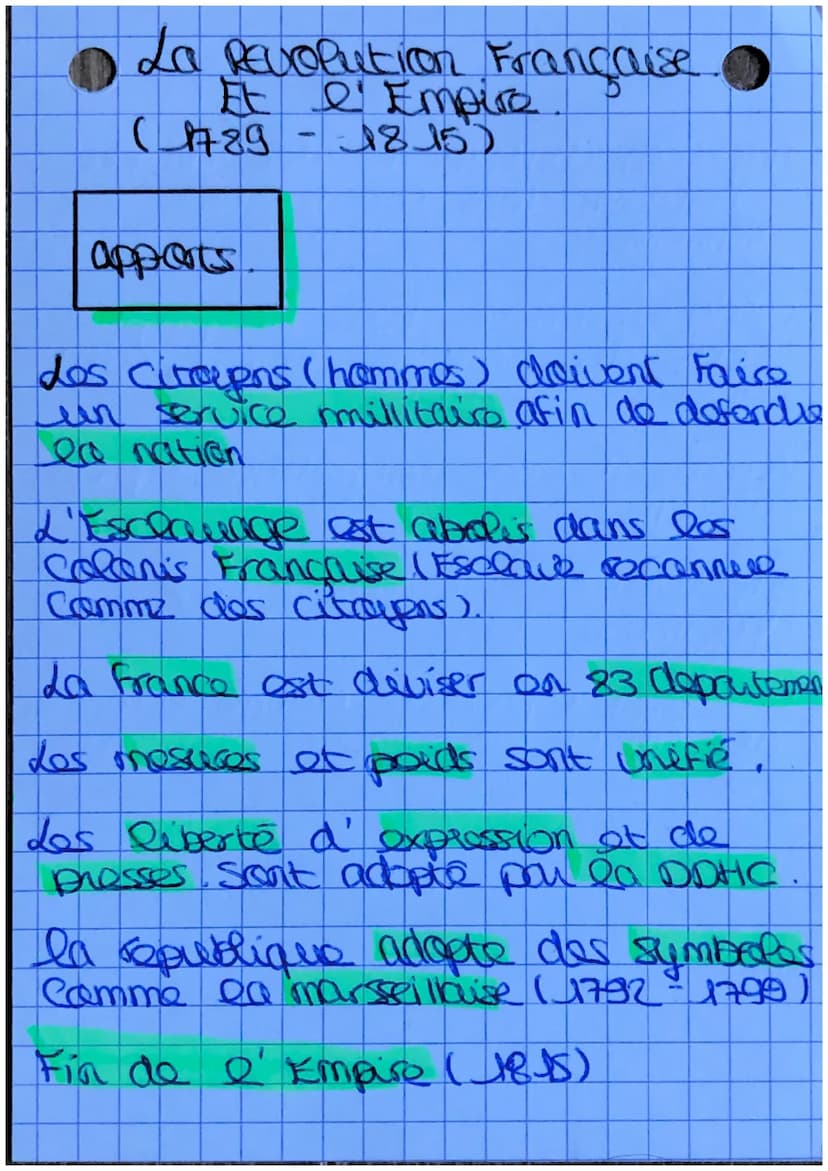 La Revolution Française.
Et l'Empire.
(1789 - 1815)
apports.
Les citoyens (hommes) doivent Faire
un service millitaire afin de defendre
la nation
L'Esclavage est abolis dans les
Colonis Française (Esclave reconnue
Comme des citoyens).
La France est diviser en 83 departemen
Les mesures et poids sont unifié.
Les liberté d'expression et de
presses. Sont adopté par la DDHC.
la republique adopte des symboles
Comme la marsseillaise (1792 - 1799)
Fin de l'Empire (1815)